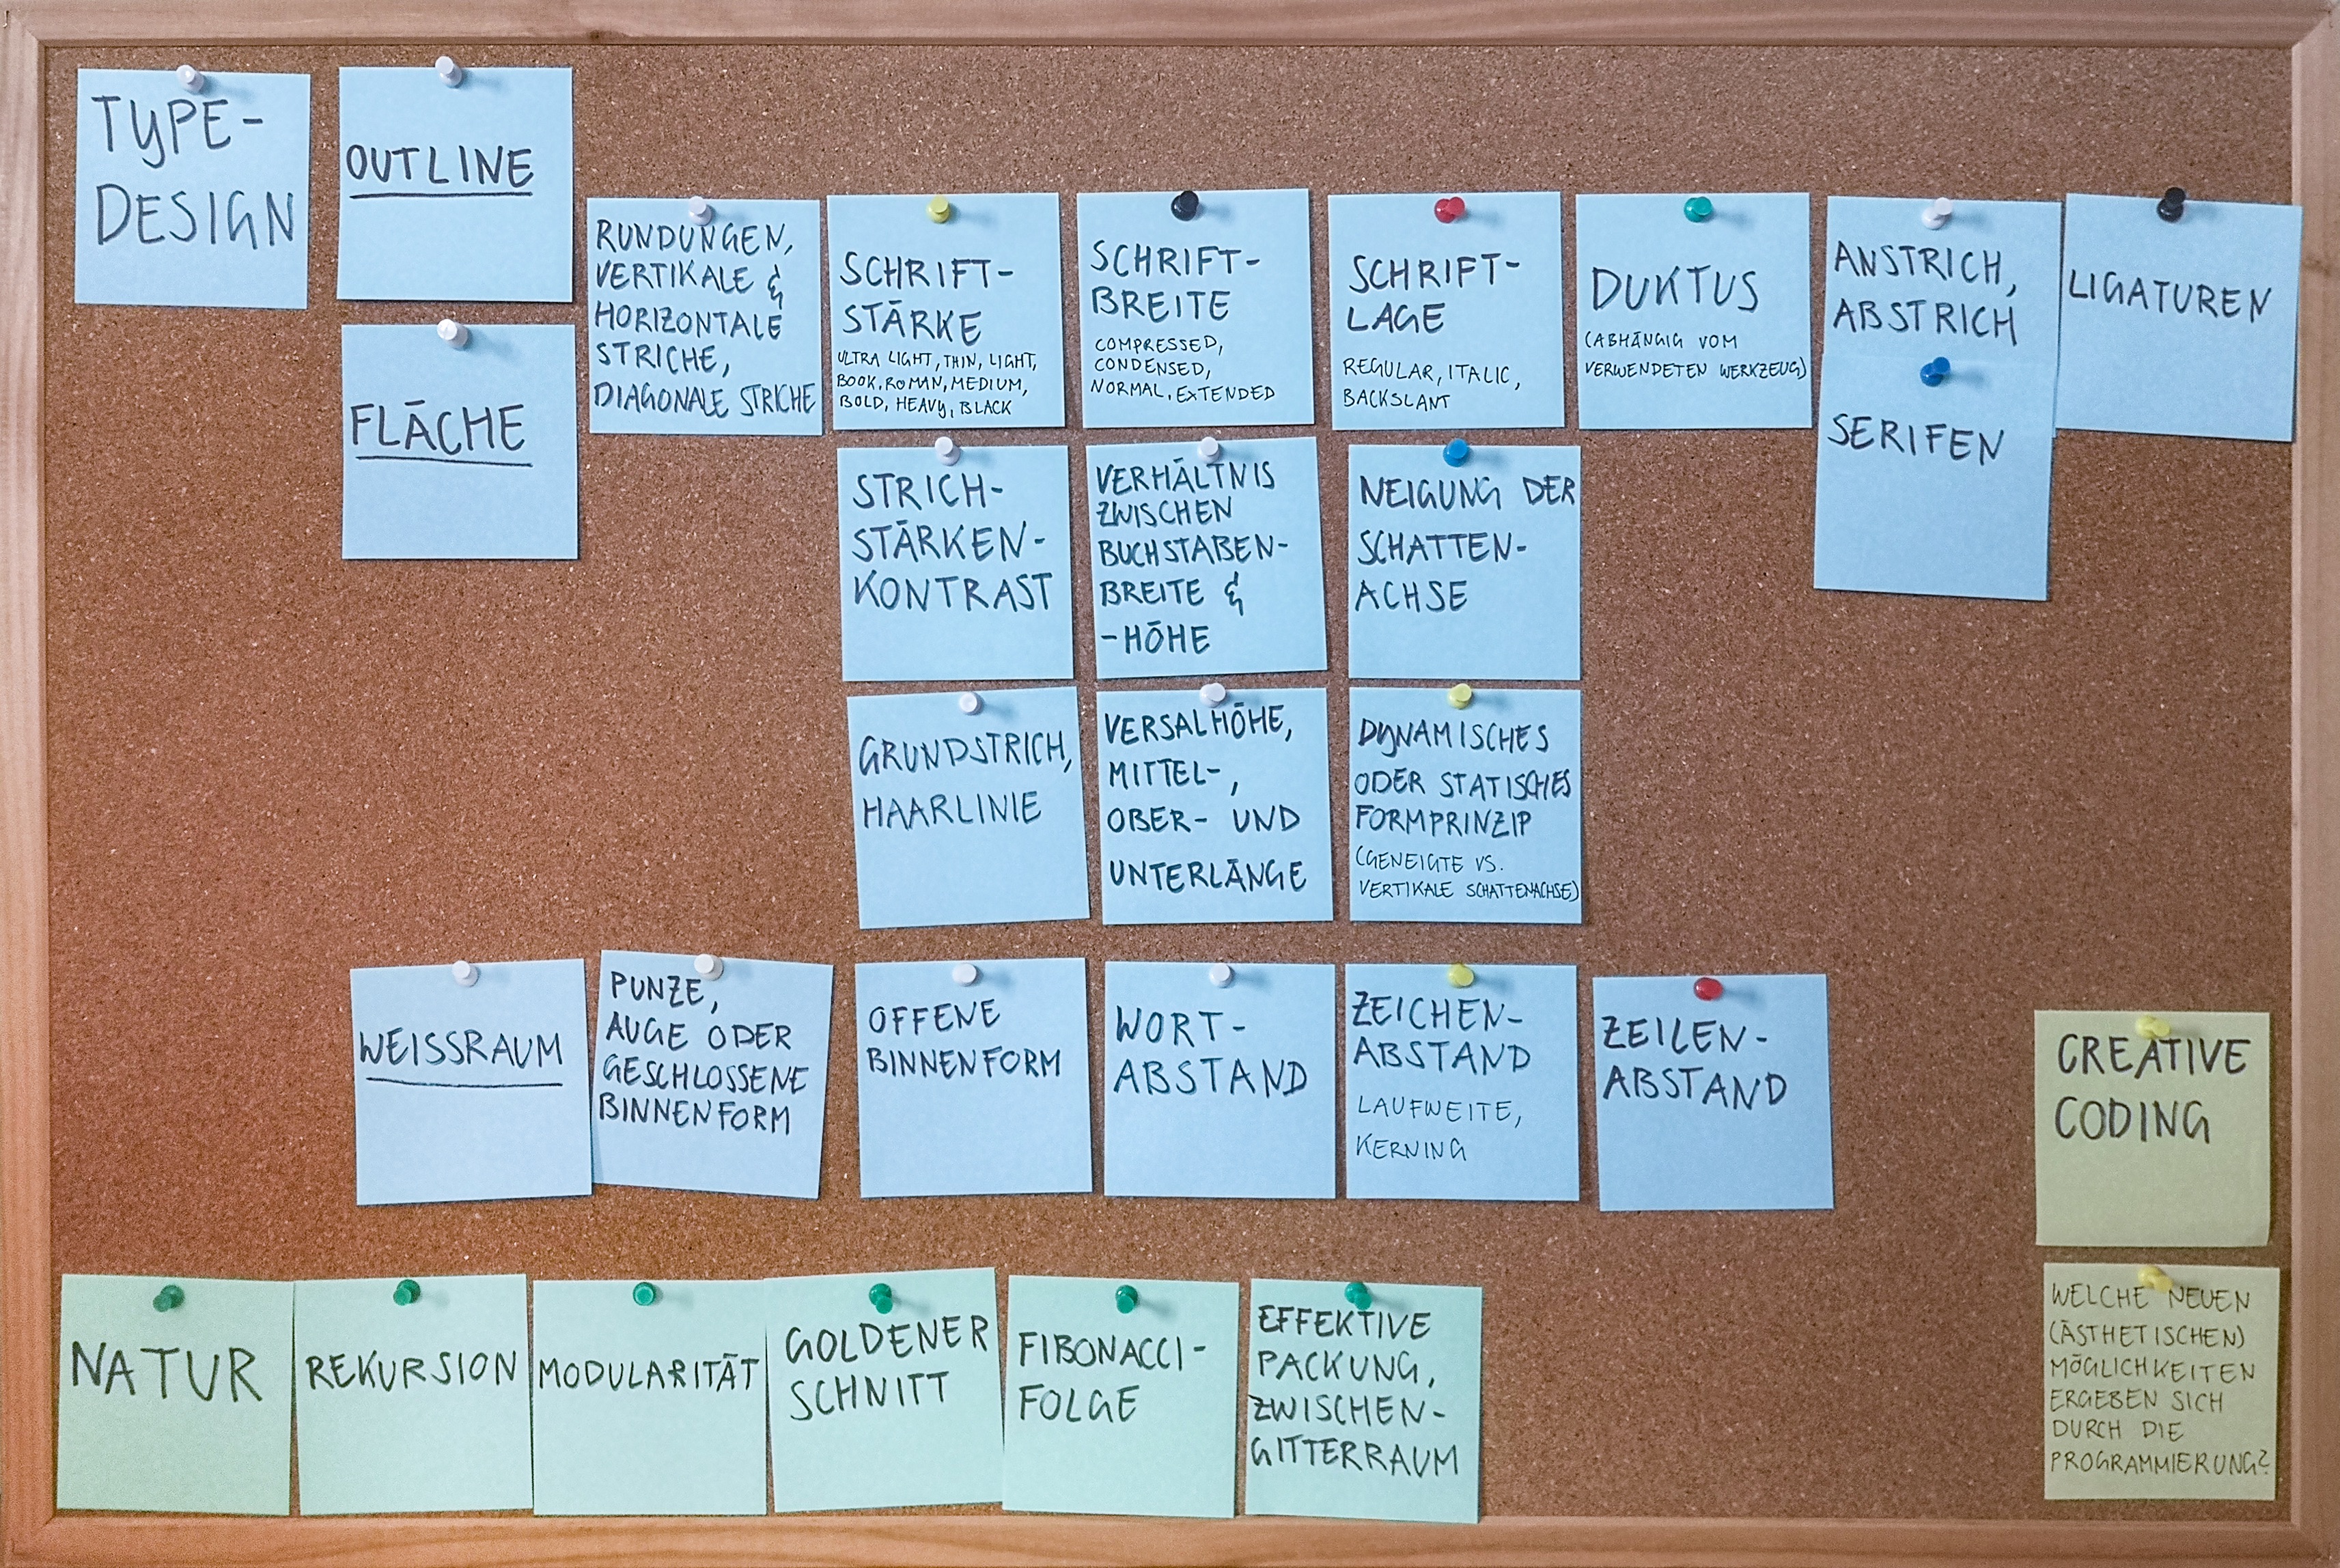 TYPE-
DESIGN
OUTLINE
FLÄCHE
RUNDUNGEN,
VERTIKALE &
HORIZONTALE
STRICHE,
DIAGONALE STRICHE
SCHRIFT-
STÄRKE
ULTRA LIGHT, THIN, LIGHT,
BOOK, ROMAN, MEDIUM,
BOLD, HEAVY, BLACK
SCHRIFT-
BREITE
COMPRESSED,
CONDENSED,
NORMAL, EXTENDED
SCHRIFT-
LAGE
REGULAR, ITALIC,
BACKSLANT
DUKTUS
(ABHÄNGIG VOM
VERWENDETEN WERKZEUG)
ANSTRICH,
ABSTRICH
SERIFEN
LIGATUREN
STRICH-
STÄRKEN-
KONTRAST
VERHÄLTNIS
ZWISCHEN
BUCHSTABEN-
BREITE &
-HÖHE
NEIGUNG DER
SCHATTEN-
ACHSE
GRUNDSTRICH,
HAARLINIE
VERSALHÖHE,
MITTEL-,
OBER- UND
UNTERLÄNGE
DYNAMISCHES
ODER STATISCHES
FORMPRINZIP
(GENEIGTE VS.
VERTIKALE SCHATTENACHSE)
WEISSRAUM
PUNZE,
AUGE ODER
GESCHLOSSENE
BINNENFORM
OFFENE
BINNENFORM
WORT-
ABSTAND
ZEICHEN-
ABSTAND
LAUFWEITE,
KERNING
ZEILEN-
ABSTAND
CREATIVE
CODING
WELCHE NEUEN
(ÄSTHETISCHEN)
MÖGLICHKEITEN
ERGEBEN SICH
DURCH DIE
PROGRAMMIERUNG?
NATUR
REKURSION
MODULARITÄT
GOLDENER
SCHNITT
FIBONACCI-
FOLGE
EFFEKTIVE
PACKUNG,
ZWISCHEN-
GITTERRAUM